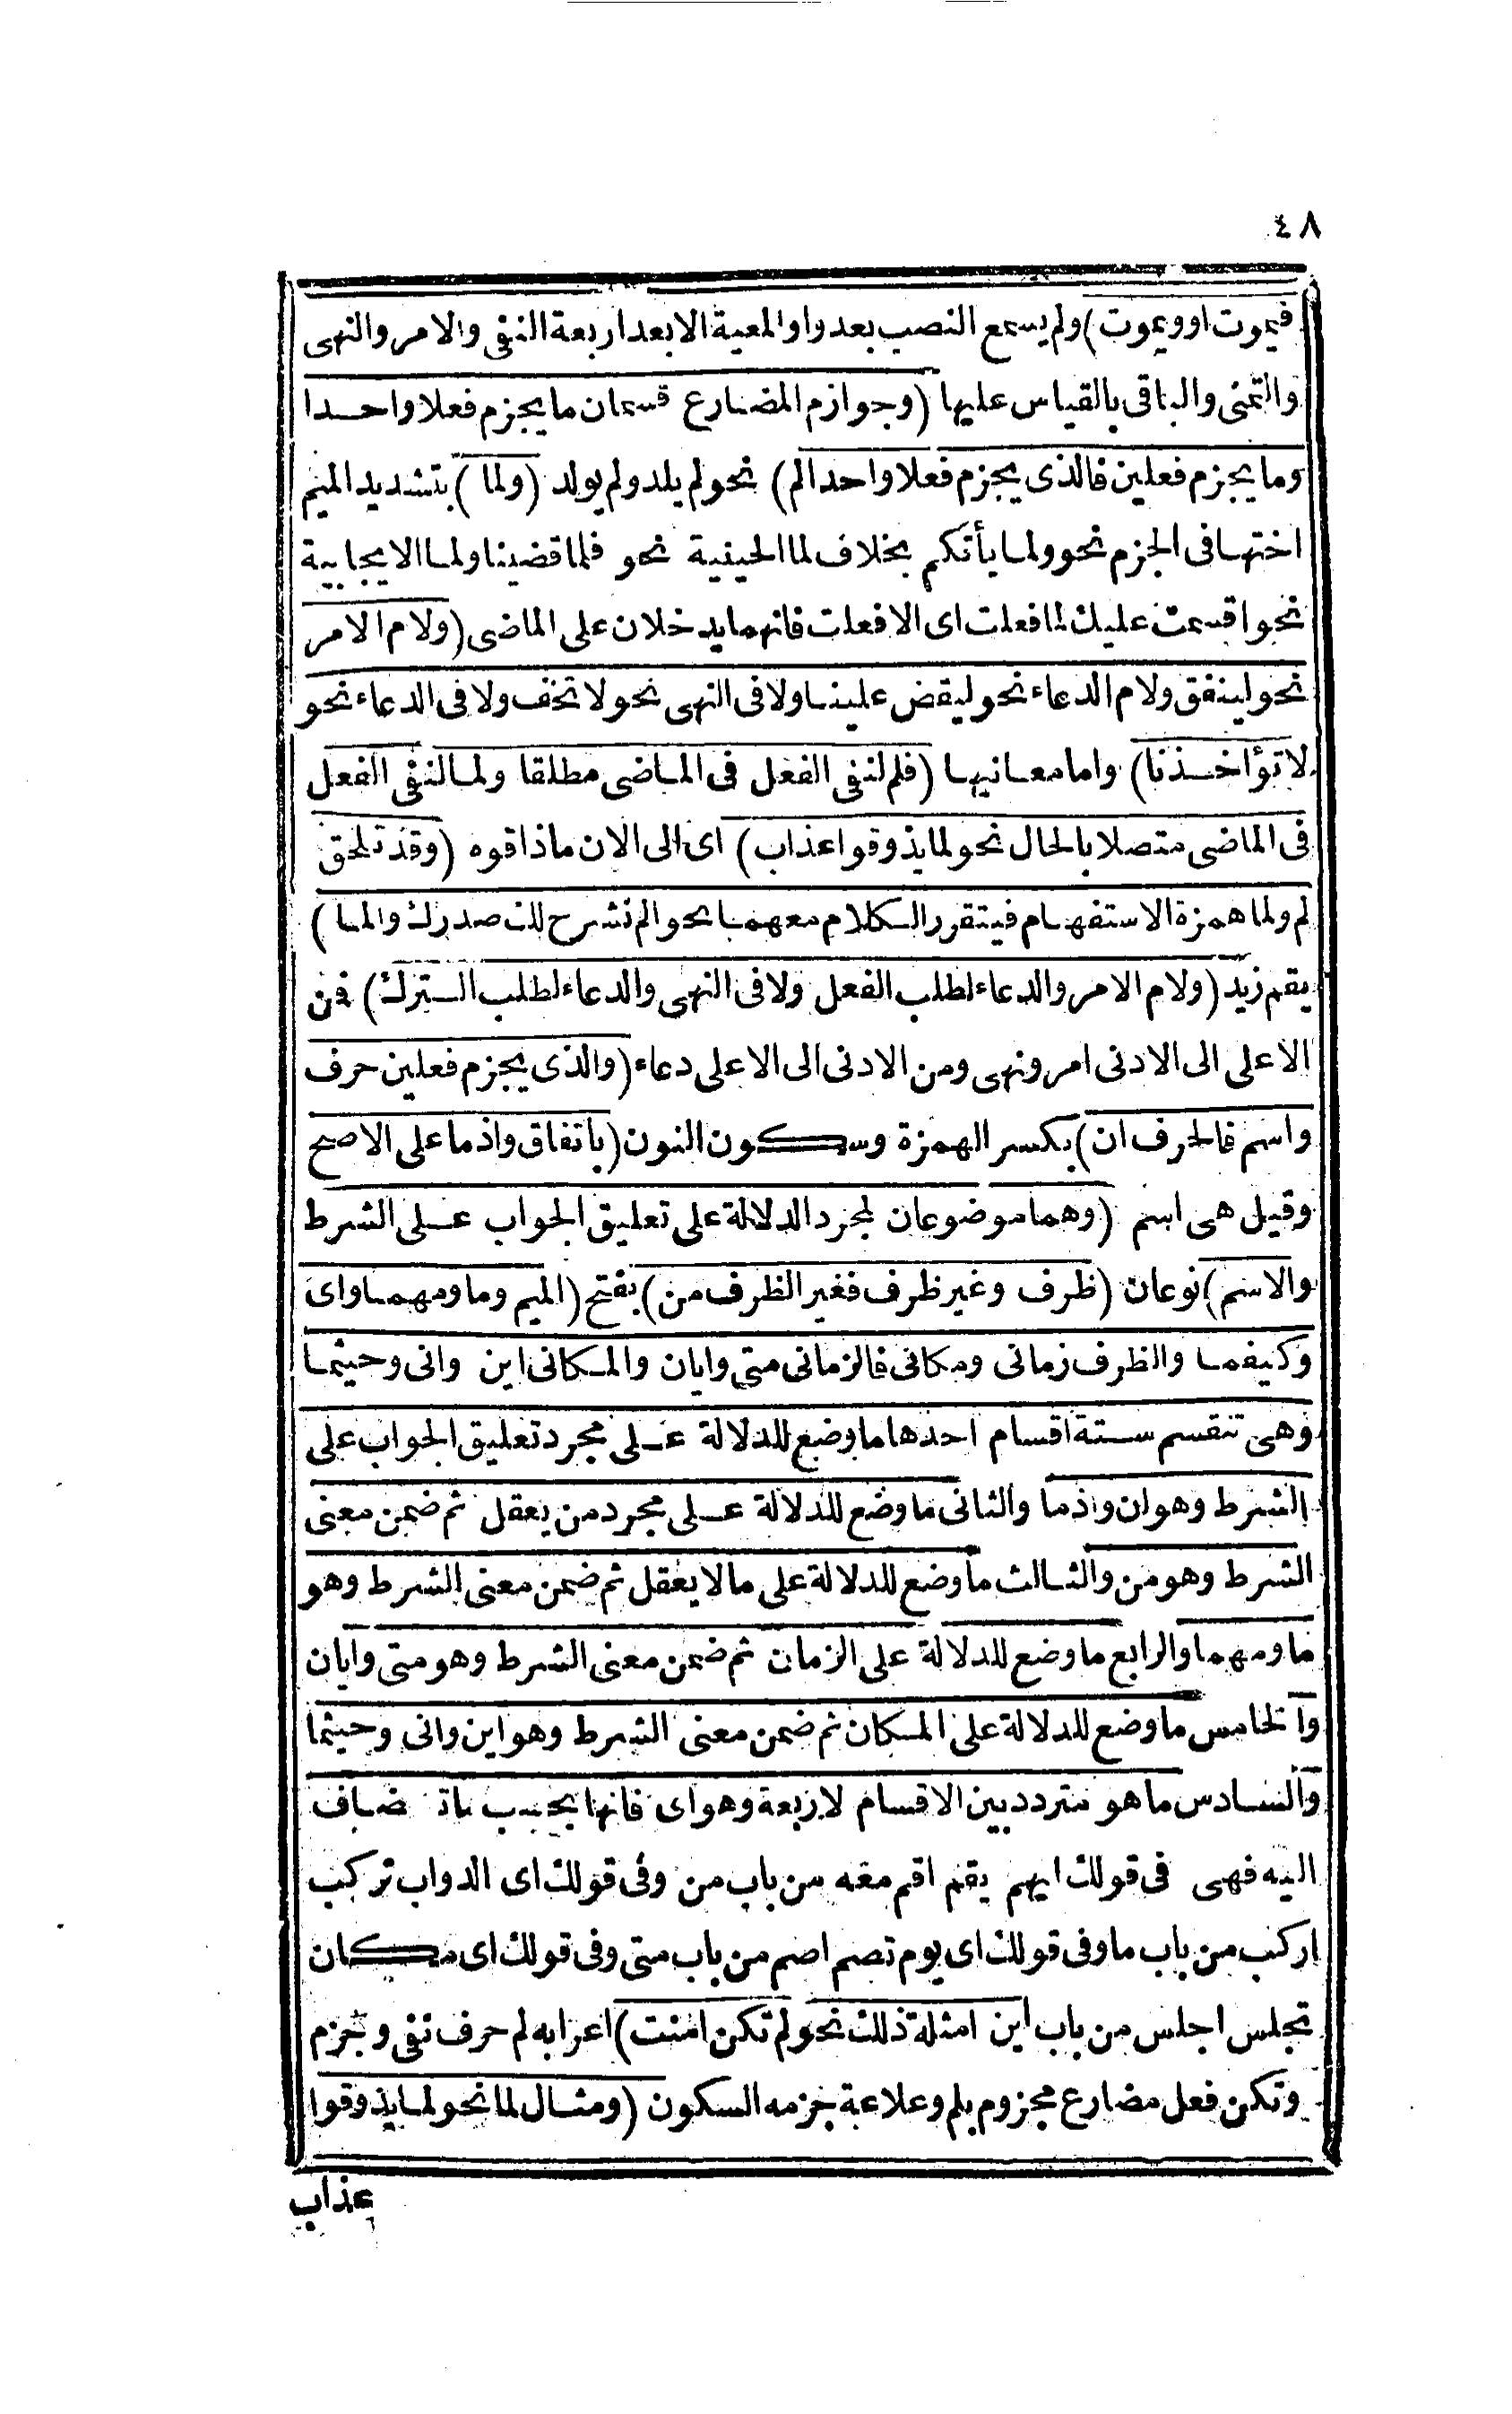 ٤٨
فيموت اوويموت) ولم يسمع النصب بعد واو المعية الا بعد اربعة النفى والامر والنهى
والتمنى والباقى بالقياس عليها (وجوازم المضارع قسمان ما يجزم فعلا واحدا
وما يجزم فعلين فالذى يجزم فعلا واحدا لم) نحو لم يلد ولم يولد (ولما) بتشديد الميم
اختها فى الجزم نحو ولما يأتكم بخلاف لما الحينية نحو فلما قضينا ولما الايجابية
نحو اقسمت عليك لما فعلت اى الا فعلت فانهما يدخلان على الماضى (ولام الامر
نحو لينفق ولام الدعاء نحو ليقض علينا ولا فى النهى نحو لا تخف ولا فى الدعاء نحو
لا تؤاخذنا) واما معانيها (فلم لنفى الفعل فى الماضى مطلقا ولما لنفى الفعل
فى الماضى متصلا بالحال نحو لما يذوقوا عذاب) اى الى الان ماذاقوه (وقد تلحق
لم ولما همزة الاستفهام فيتقرر الكلام معهما نحو الم نشرح لك صدرك والما)
يقم زيد (ولام الامر والدعاء لطلب الفعل ولا فى النهى والدعاء لطلب الترك) فمن
الاعلى الى الادنى امر ونهى ومن الادنى الى الاعلى دعاء (والذى يجزم فعلين حرف
واسم فالحرف ان) بكسر الهمزة وسكون النون (باتفاق واذما على الاصح
وقيل هى اسم (وهما موضوعان لمجرد الدلالة على تعليق الجواب على الشرط
والاسم) نوعان (ظرف وغير ظرف فغير الظرف من) بفتح (الميم وما ومهما واى
وكيفما والظرف زمانى ومكانى فالزمانى متى وايان والمكانى اين وانى وحيثما
وهى تنقسم ستة اقسام احدها ما وضع للدلالة على مجرد تعليق الجواب على
الشرط وهو ان واذما والثانى ما وضع للدلالة على مجرد من يعقل ثم ضمن معنى
الشرط وهو من والثالث ما وضع للدلالة على ما لا يعقل ثم ضمن معنى الشرط وهو
ما ومهما والرابع ما وضع للدلالة على الزمان ثم ضمن معنى الشرط وهو متى وايان
والخامس ما وضع للدلالة على المكان ثم ضمن معنى الشرط وهو اين وانى وحيثما
والسادس ما هو متردد بين الاقسام لاربعة وهو اى فانها بحسب ما تضاف
اليه فهى فى قولك ايهم يقم اقم معه من باب من وفى قولك اى الدواب تركب
اركب من باب ما وفى قولك اى يوم تصم اصم من باب متى وفى قولك اى مكان
تجلس اجلس من باب اين امثلة ذلك نحو لم تكن امنت) اعرابه لم حرف نفى وجزم
وتكن فعل مضارع مجزوم بلم وعلامة جزمه السكون (ومثال لما نحو لما يذوقوا
عذاب